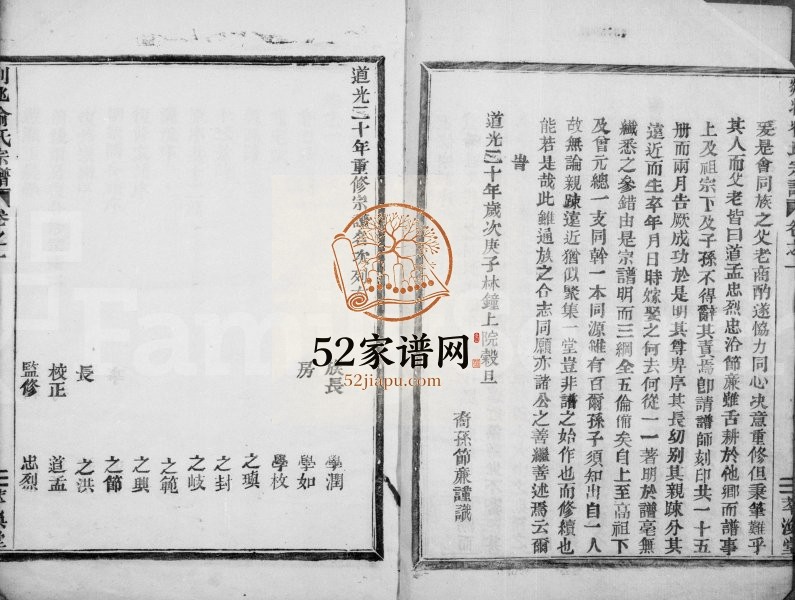 爰是會同族之父老商酌遂協力同心决意重修但秉筆難乎
其人而父老皆曰道孟忠烈忠沿節廉雖舌耕於他鄉而譜事
上及祖宗下及子孫不得辭其責焉卽請譜師刻印共一十五
册而兩月告厥成功於是明其尊卑序其長幼别其親踈分其
遠近而生卒年月日時嫁娶之何去何從一一著明於譜毫無
纖悉之參錯由是宗譜明而三綱全五倫備矣自上至高祖下
及曾元總一支同幹一本同源雖有百爾孫子須知出自一人
故無論親踈遠近猶似聚集一堂豈非譜之始作也而修續也
能若是哉此雖通族之仝志同願亦諸公之善繼善述焉云爾
旹
道光三十年歲次庚子林鐘上院穀旦
裔孫節廉謹識
道光三十年重修宗譜
族長
學潤
學如
房
學枚
之璵
之封
之岐
之範
之興
之節
長
之洪
校正
道孟
監修
忠烈
俞氏宗譜
卷之一
52家谱网
52jiapu.com